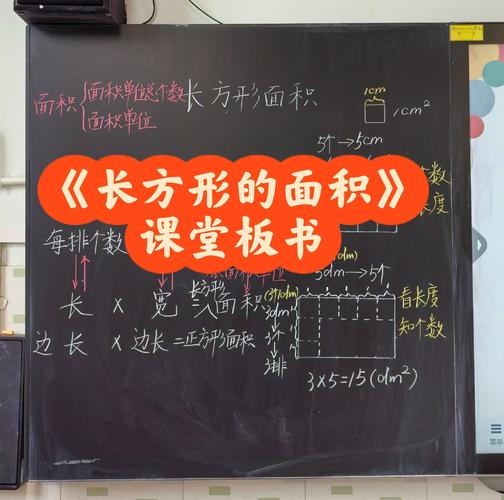 长方形面积
面积
面积单位总个数
面积单位
1cm
1cm²
5个→5cm
个数
长度
《长方形的面积》
课堂板书
每排个数
面积单位
5dm→5个
长 × 宽 = 长方形面积
边长 × 边长 = 正方形面积
(3个1dm)
3dm
3个
3排
看长度
知个数
3×5=15(dm²)